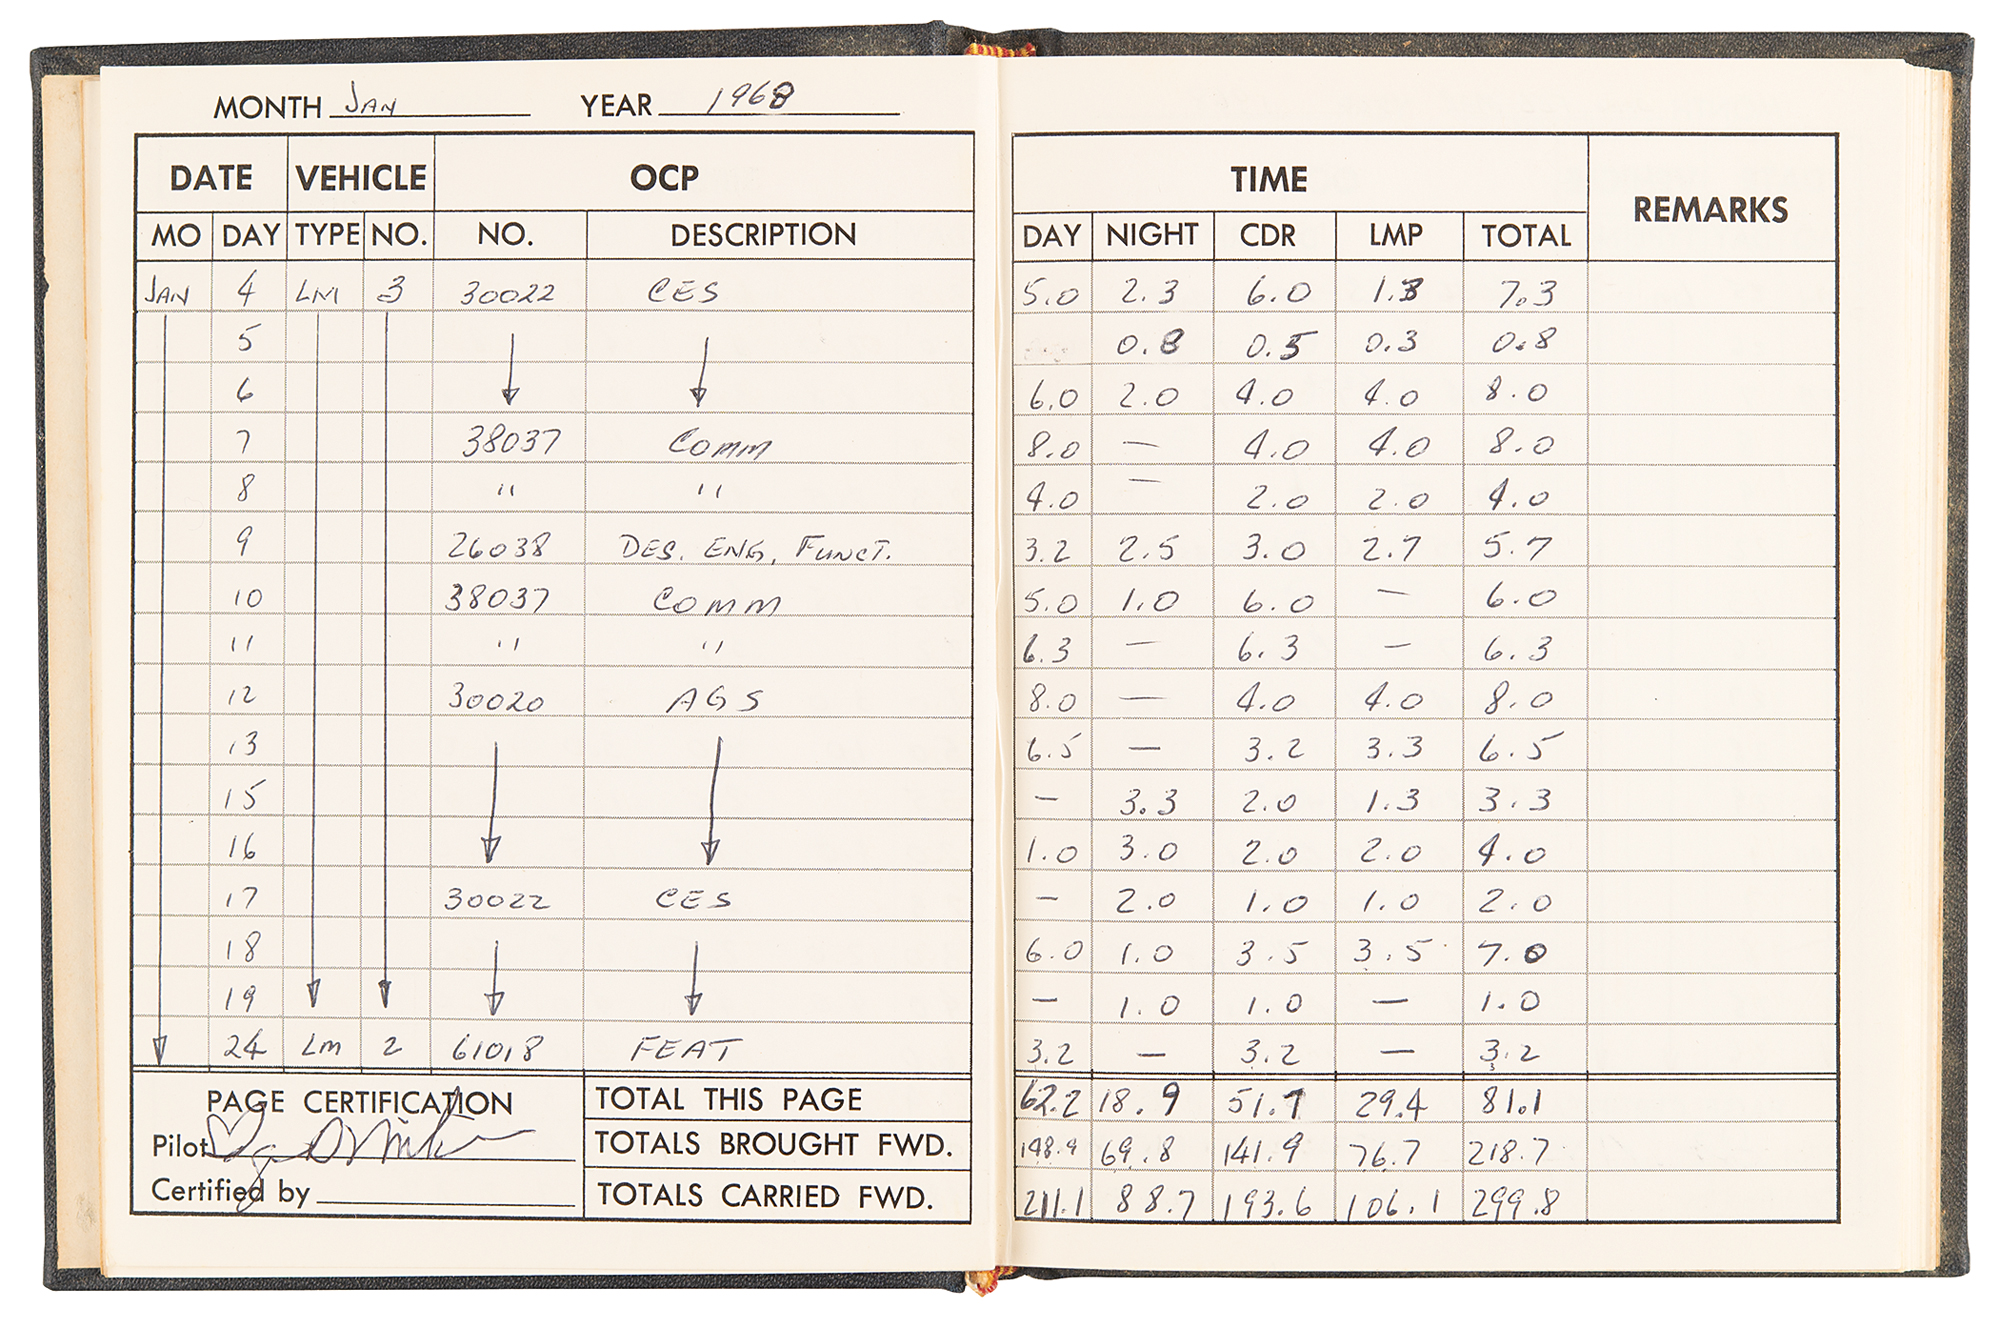 MONTH Jan YEAR 1968
DATE VEHICLE OCP TIME REMARKS
MO DAY TYPE NO. NO. DESCRIPTION DAY NIGHT CDR LMP TOTAL
JAN 4 LM 3 30022 CES 5.0 2.3 6.0 1.3 7.3
5 0.8 0.5 0.3 0.8
6 6.0 2.0 4.0 4.0 8.0
7 38037 COMM 8.0 — 4.0 4.0 8.0
8 " " 4.0 — 2.0 2.0 4.0
9 26038 DES. ENG, FUNCT. 3.2 2.5 3.0 2.7 5.7
10 38037 COMM 5.0 1.0 6.0 — 6.0
11 " " 6.3 — 6.3 — 6.3
12 30020 AGS 8.0 — 4.0 4.0 8.0
13 6.5 — 3.2 3.3 6.5
15 — 3.3 2.0 1.3 3.3
16 1.0 3.0 2.0 2.0 4.0
17 30022 CES — 2.0 1.0 1.0 2.0
18 6.0 1.0 3.5 3.5 7.0
19 — 1.0 1.0 — 1.0
24 Lm 2 61018 FEAT 3.2 — 3.2 — 3.2
PAGE CERTIFICATION TOTAL THIS PAGE 62.2 18.9 51.7 29.4 81.1
Pilot TOTALS BROUGHT FWD. 148.9 69.8 141.9 76.7 218.7
Certified by TOTALS CARRIED FWD. 211.1 88.7 193.6 106.1 299.8